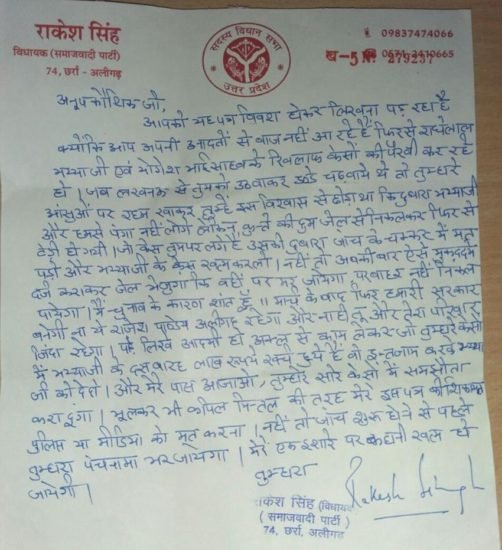 राकेश सिंह
विधायक (समाजवादी पार्टी)
74, छर्रा - अलीगढ़
सदस्य विधान सभा
उत्तर प्रदेश
09837474066
0571-2410665
ख-5 No. 279257
अनूप कौशिक जी,
आपको यह पत्र विवश होकर लिखना पड़ रहा है
क्योंकि आप अपनी आदतों से बाज नहीं आ रहे हैं फिर से
भय्याजी एवं योगेश भाईसाहब के खिलाफ केसों की पैरवी कर रहे
हो। जब लखनऊ से तुमको उठवाकर डंडे चढवाये थे तो तुम्हारे
आंसुओं पर रहम खाकर तुम्हें इस विश्वास से छोडा था कि दुबारा भय्याजी
और हमसे पंगा नहीं लोगे लेकिन, कुत्ते की दुम जेल से निकलकर फिर से
टेढी हो गयी। जो केस तुम पर लगे हैं उसकी दुबारा जांच के चक्कर में मत
पडो और भय्याजी के केस खत्म करलो। नहीं तो अबकी बार ऐसे मुकद्दमे
दर्ज कराकर जेल भेजूंगा कि वहीं पर मर जायेगा पर बाहर नहीं निकल
पायेगा। मैं चुनाव के कारण शांत हूं।। मार्च के बाद फिर हमारी सरकार
बनेगी ना ये राजेश पाण्डेय अलीगढ रहेगा और ना ही तू और तेरा परिवार
जिंदा रहेगा। पढे लिखे आदमी हो अक्ल से काम लेकर जो तुम्हारे केसों
में भय्याजी के दस बारह लाख रुपये खर्च हुये हैं वो इन्तजाम करके भय्या
जी को देदो। और मेरे पास आजाओ, तुम्हारे सारे केसों में समझौता
करा दूंगा। भूलकर भी कपिल मित्तल की तरह मेरे इस पत्र की शिकायत
पुलिस या मीडिया को मत करना। नहीं तो जांच शुरू होने से पहले
तुम्हारा पंचनामा भर जायेगा। मेरे एक इशारे पर कहानी खत्म हो
जायेगी।
तुम्हारा
Rakesh Singh
राकेश सिंह (विधायक
(समाजवादी पार्टी)
74, छर्रा, अलीगढ़